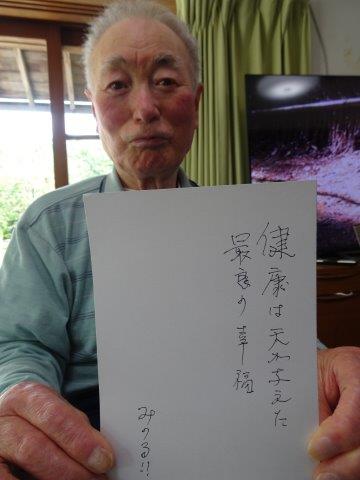 健康は天が与えた
最高の幸福
みのる!!